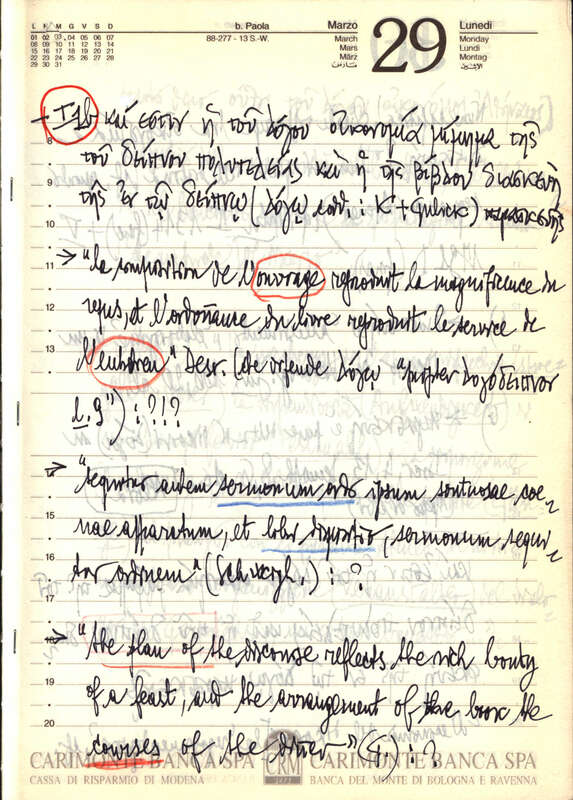 L M M G V S D
01 02 03 04 05 06 07
08 09 10 11 12 13 14
15 16 17 18 19 20 21
22 23 24 25 26 27 28
29 30 31
b. Paola
88-277 - 13 S.-W.
Marzo
March
Mars
März
مَارس
29
Lunedì
Monday
Lundi
Montag
الاثنين
– I 1b καί ἐστιν ἡ τοῦ λόγου οἰκονομία μίμημα τῆς
8
τοῦ δείπνου πολυτελείας καὶ ἡ τῆς βίβλου διασκευὴ
9
τῆς ἐν τῷ δείπνῳ (λόγῳ codd. : K + Gulick) παρασκευῆς
10
11
→ "la composition de l'ouvrage reproduit la magnificence du
12
repas, et l'ordonnance du livre reproduit le service de
13
l'entretien" Desr. (che difende λόγῳ "propter λογόδειπνον
l. 9") : ?!?
→ "sequitur autem sermonum ordo ipsum sontuosae coe-
15
nae apparatum, et libri dispositio, sermonum sequi-
16
tur ordinem" (Schweigh.) : ?
17
18
→ "the plan of the discourse reflects the rich bounty
19
of a feast, and the arrangement of the book the
20
courses of the dinner" (G.) : ?
CARIMONTE BANCA SPA
CASSA DI RISPARMIO DI MODENA
CRM
CARIMONTE BANCA SPA
BANCA DEL MONTE DI BOLOGNA E RAVENNA